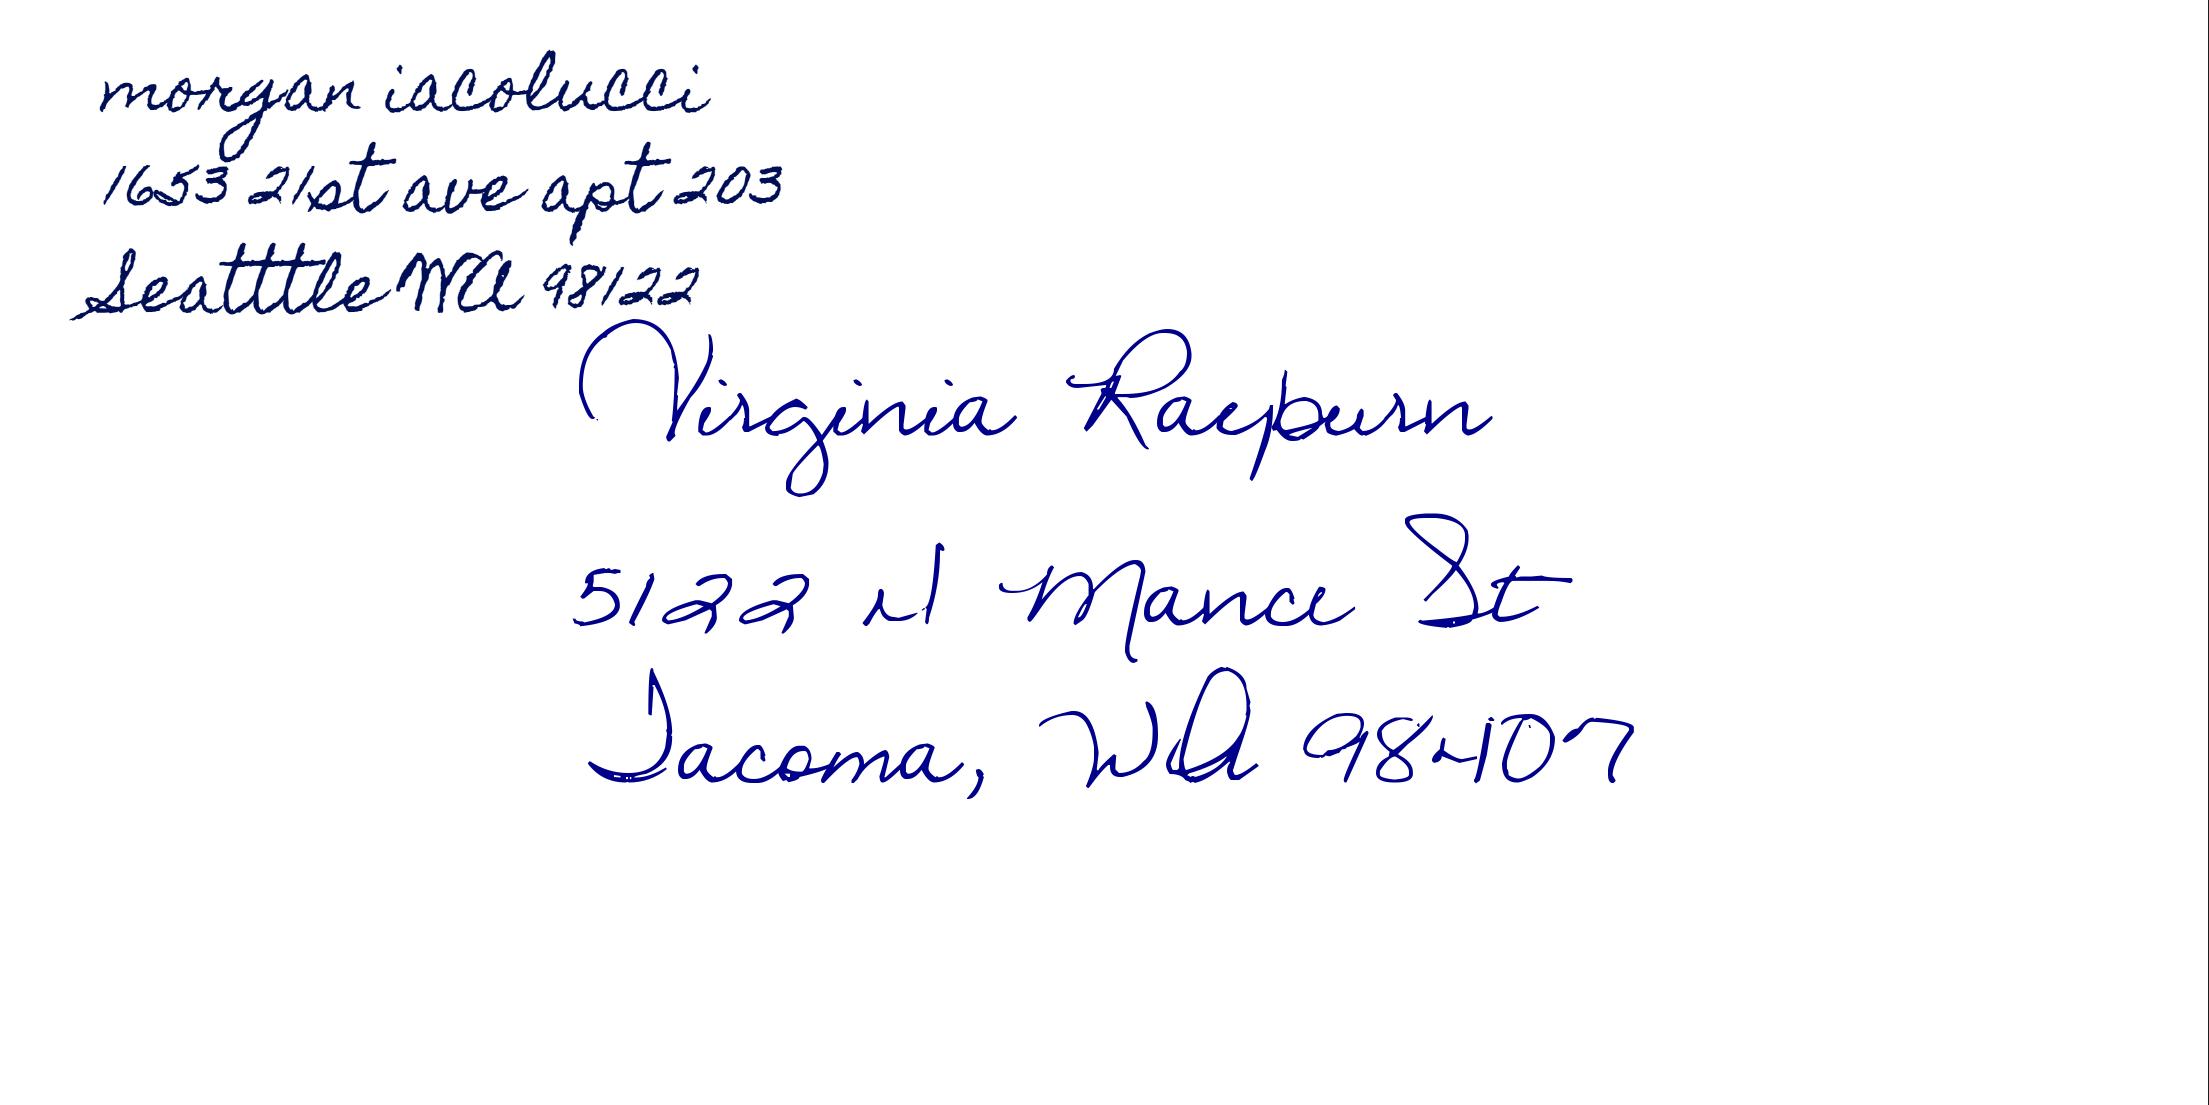 morgan iacolucci
1653 21st ave apt 203
Seatttle WA 98122
Virginia Raepurn
5122 N Mance St
Tacoma, WA 98407